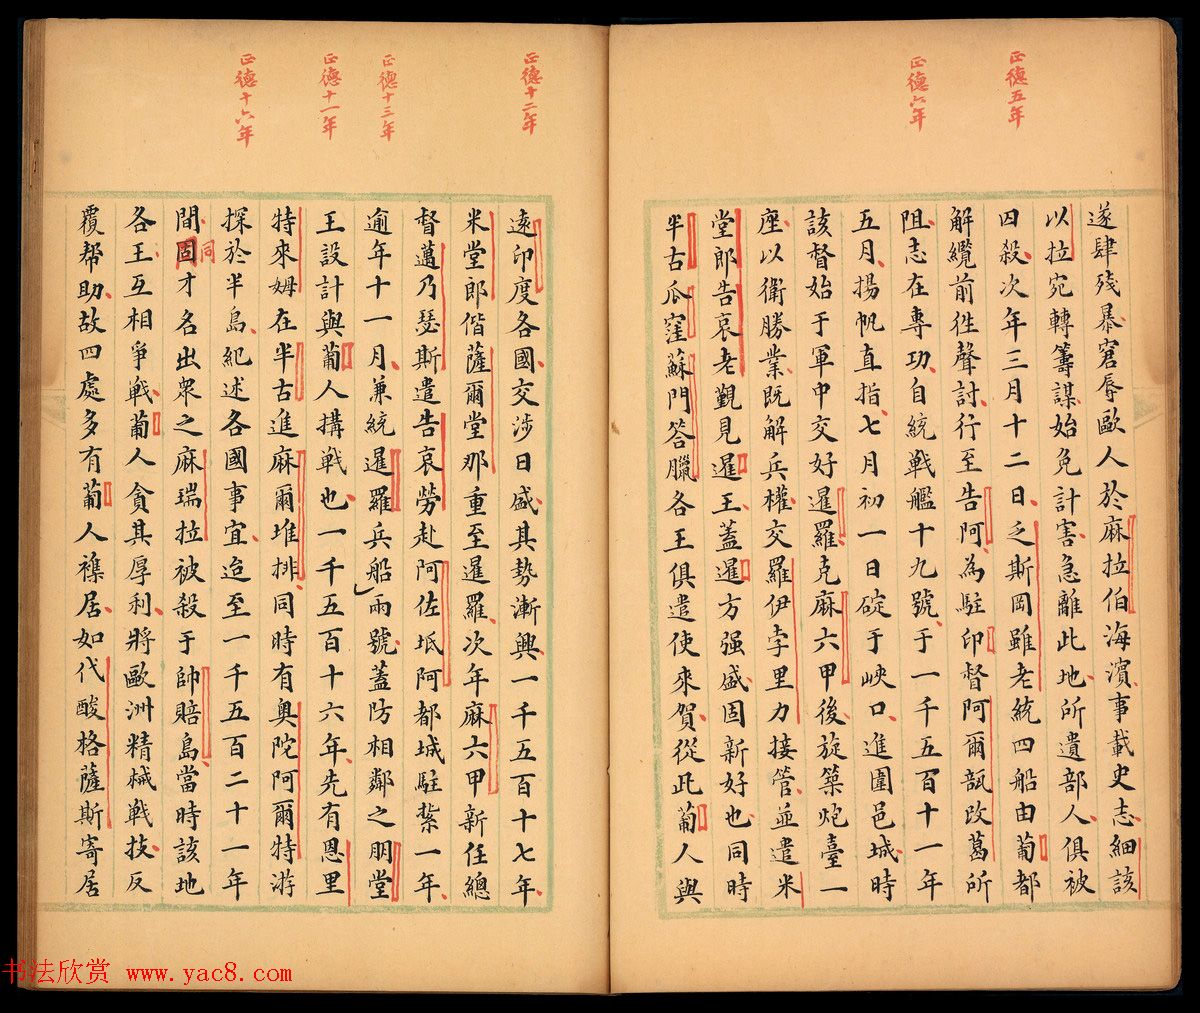 正德五年
正德六年
遂肆殘暴窘辱歐人於麻拉伯海濱事載史志細該
以拉宛轉籌謀始免計害急離此地所遺部人俱被
四殺次年三月十二日乏斯岡雖老統四船由葡都
解纜前徃聲討行至告阿為駐印督阿爾瓿改葛所
阻志在專功自統戰艦十九號于一千五百十一年
五月揚帆直指七月初一日碇于峽口進圍邑城時
該督始于軍中交好暹羅克麻六甲後旋築炮臺一
座以衛勝業既解兵權交羅伊孛里力接管並遣米
堂郎告哀老覲見暹王蓋暹方强盛固新好也同時
半古瓜窪蘇門答臘各王俱遣使來賀從此葡人與
正德十二年
正德十三年
正德十一年
正德十六年
遠印度各國交涉日盛其勢漸興一千五百十七年
米堂郎偕薩爾堂那重至暹羅次年麻六甲新任總
督邁乃瑟斯遣告哀勞赴阿佐坻阿都城駐紮一年
逾年十一月兼統暹羅兵船兩號蓋防相鄰之朋堂
王設計與葡人搆戰也一千五百十六年先有恩里
特來姆在半古進麻爾堆排同時有奥陀阿爾特游
探於半島紀述各國事宜迨至一千五百二十一年
間固才名出衆之麻瑞拉被殺于帥賠島當時該地
同
各王互相爭戰葡人貪其厚利將歐洲精械戰技反
覆帮助故四處多有葡人襍居如代酸格薩斯寄居
书法欣赏 www.yac8.com